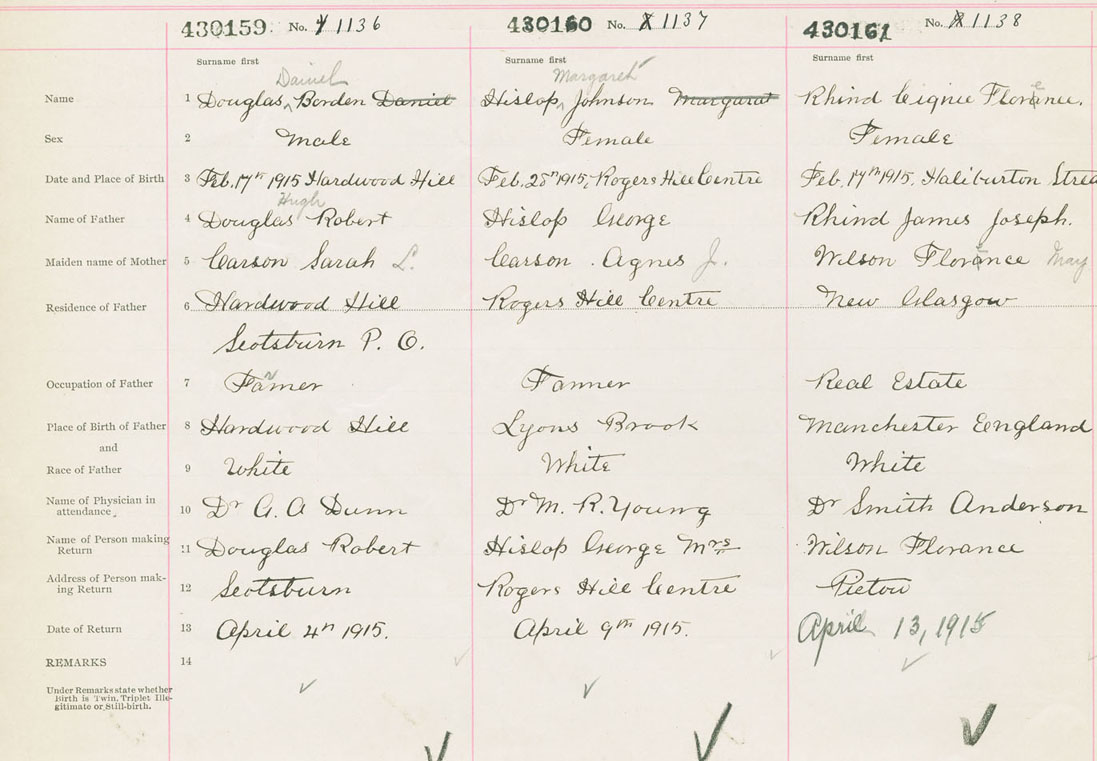 430159 No. 1136 430160 No. 1137 430161 No. 1138
Surname first Surname first Surname first
Daniel Margaret
Name 1 Douglas Borden Daniel Hislop Johnson Margaret Rhind Florence.
Sex 2 Male Female Female
Date and Place of Birth 3 Feb. 17th 1915 Hardwood Hill Feb. 28th 1915, Rogers Hill Centre Feb. 17th 1915, Haliburton Stree
Hugh
Name of Father 4 Douglas Robert Hislop George Rhind James Joseph.
Maiden name of Mother 5 Carson Sarah L. Carson Agnes J. Wilson Florence May
Residence of Father 6 Hardwood Hill Rogers Hill Centre New Glasgow
Scotsburn P. O.
Occupation of Father 7 Farmer Farmer Real Estate
Place of Birth of Father 8 Hardwood Hill Lyons Brook Manchester England
and
Race of Father 9 White White White
Name of Physician in
attendance. 10 Dr G. A Dunn Dr M. R. Young Dr Smith Anderson
Name of Person making
Return 11 Douglas Robert Hislop George Mrs Wilson Florance
Address of Person mak-
ing Return 12 Scotsburn Rogers Hill Centre Pictou
Date of Return 13 April 4th 1915. April 9th 1915. April 13, 1915
REMARKS 14
Under Remarks state whether
Birth is Twin, Triplet Ille-
gitimate or Still-birth.